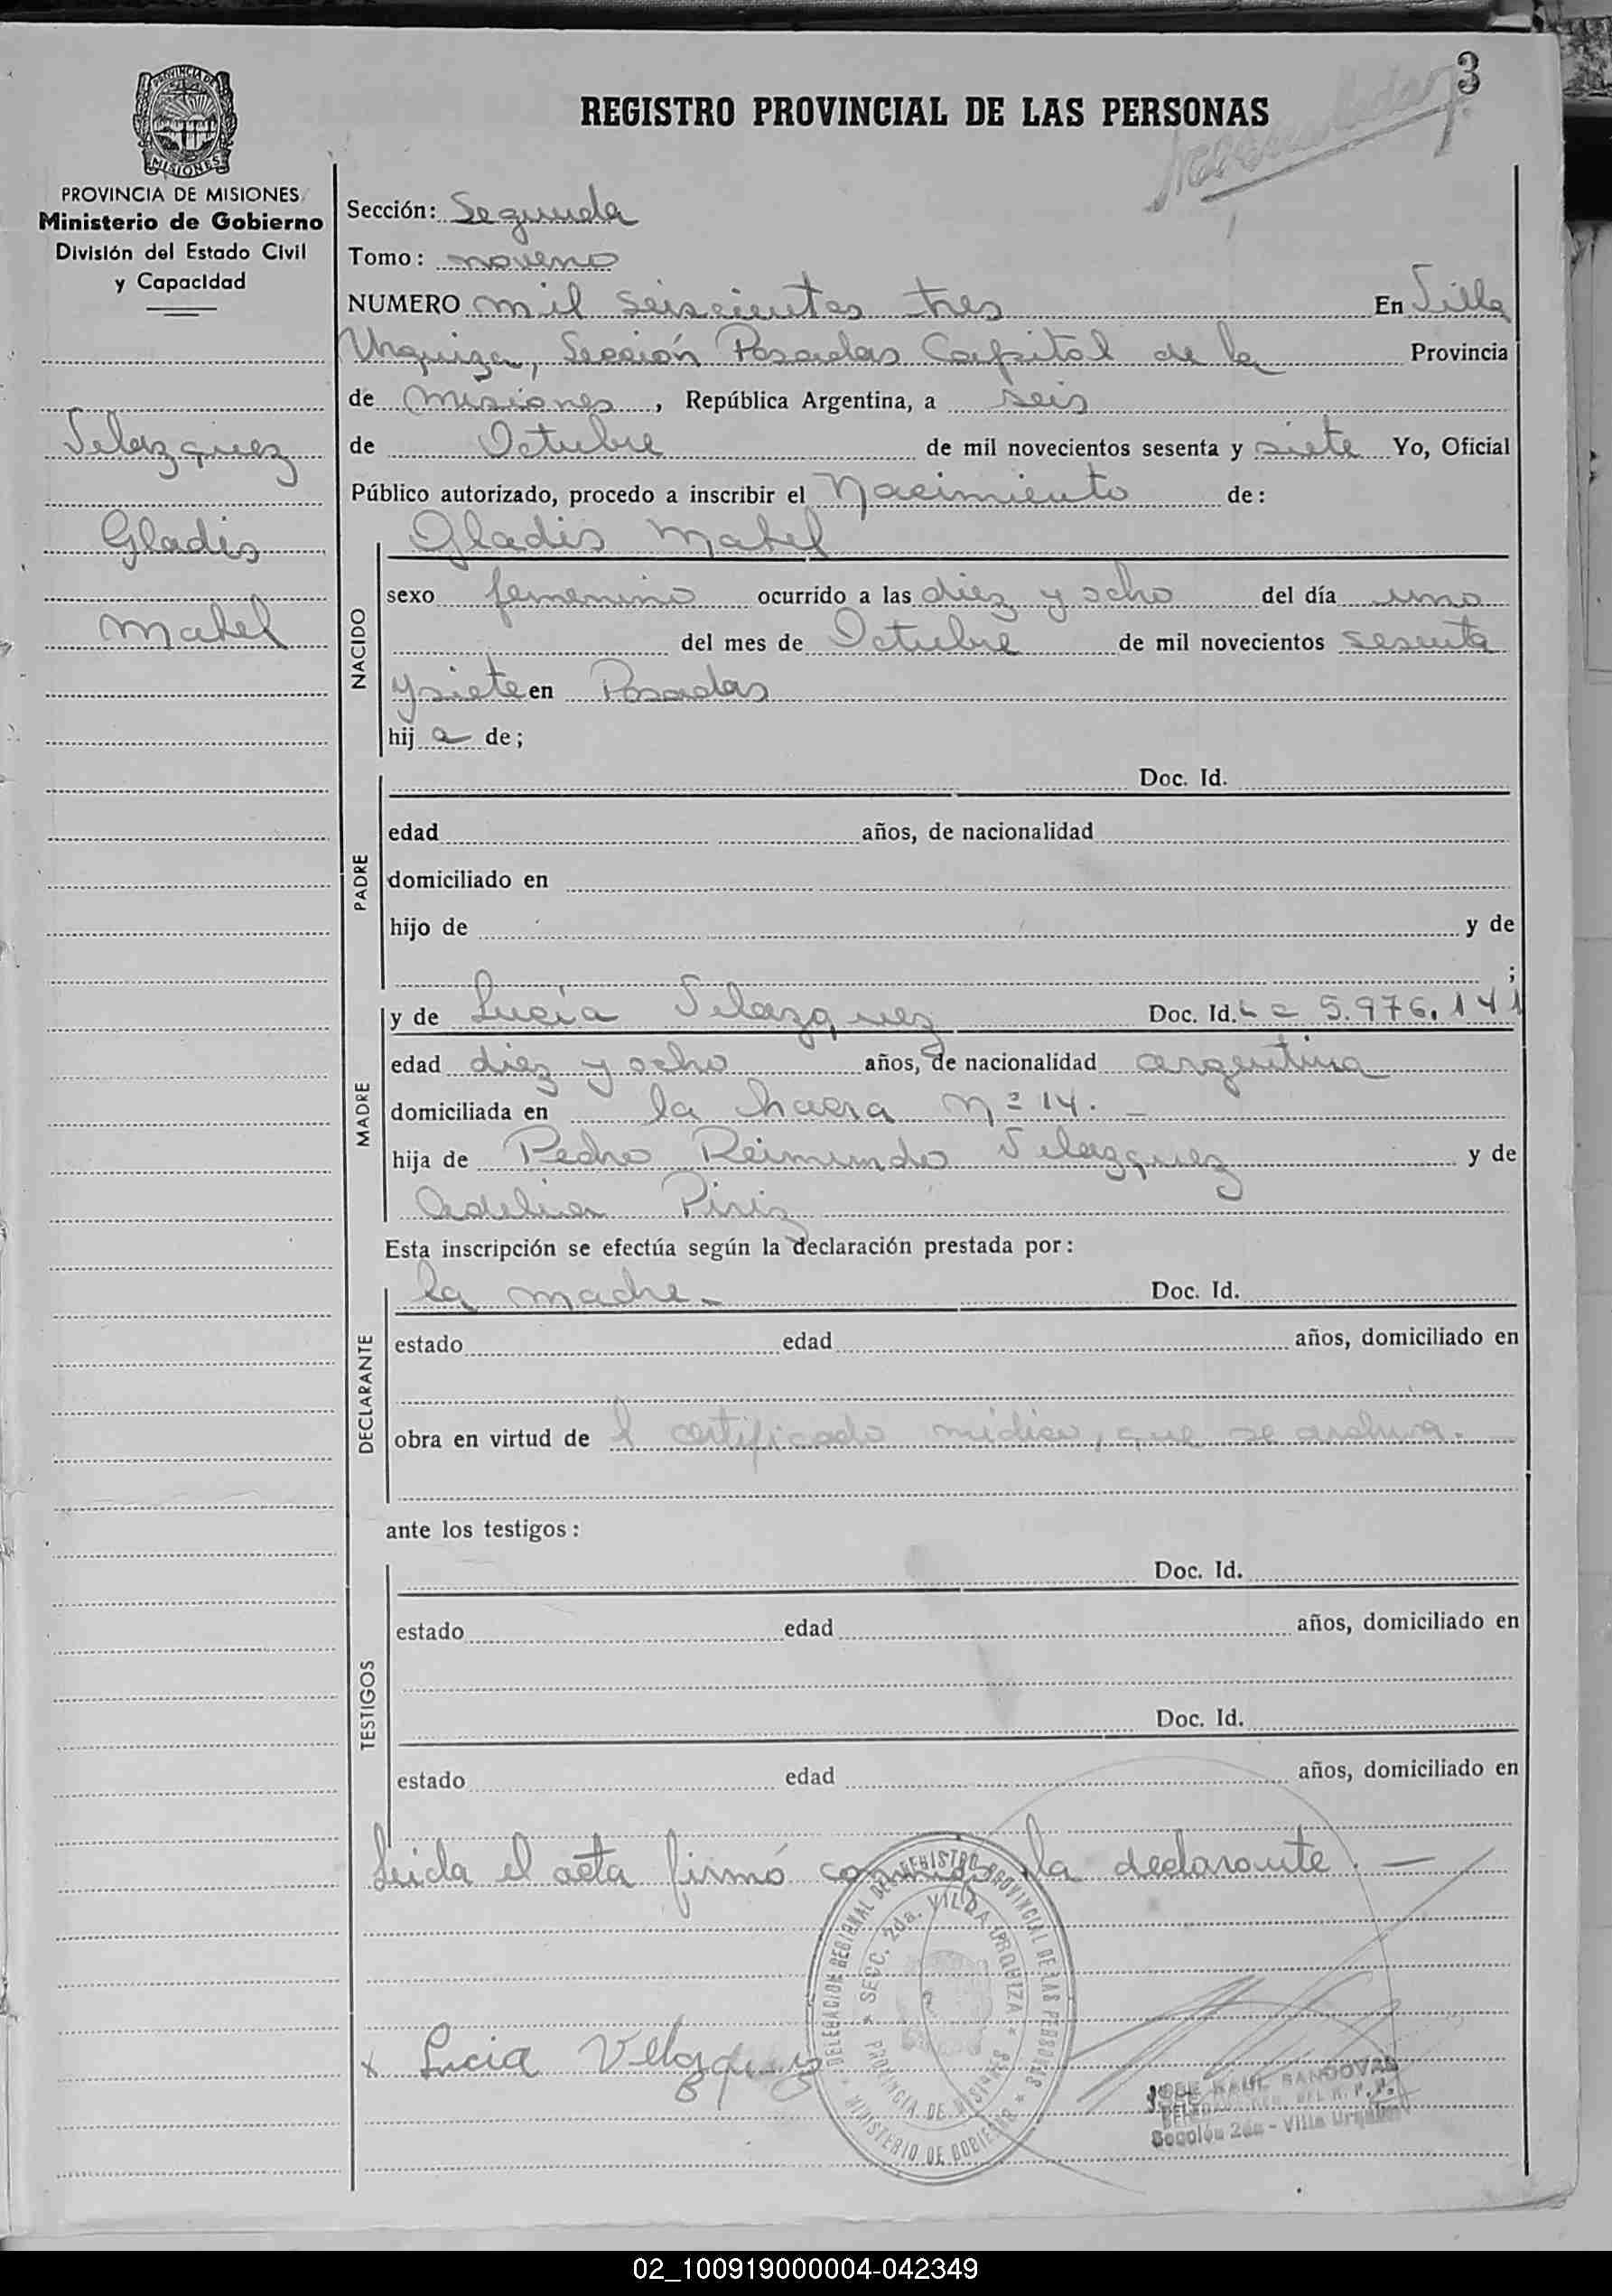 3
REGISTRO PROVINCIAL DE LAS PERSONAS
PROVINCIA DE MISIONES
MISIONES
PROVINCIA DE MISIONES
Ministerio de Gobierno
División del Estado Civil
y Capacidad
Velazquez
Gladis
Mabel
Sección: Segunda
Tomo: noveno
NUMERO mil seiscientos tres En Villa
Urquiza, Sección Posadas Capital de la Provincia
de Misiones, República Argentina, a seis
de Octubre de mil novecientos sesenta y siete Yo, Oficial
Público autorizado, procedo a inscribir el Nacimiento de:
NACIDO
Gladis Mabel
sexo femenino ocurrido a las diez y ocho del día uno
del mes de Octubre de mil novecientos sesenta
y siete en Posadas
hij a de;
PADRE
Doc. Id.
edad años, de nacionalidad
domiciliado en
hijo de y de
;
MADRE
y de Lucía Velazquez Doc. Id. L C 5.976.141
edad diez y ocho años, de nacionalidad argentina
domiciliada en la hacra Nº 14. -
hija de Pedro Reimundo Velazquez y de
Adelia Piriz
Esta inscripción se efectúa según la declaración prestada por:
DECLARANTE
la madre. Doc. Id.
estado edad años, domiciliado en
obra en virtud de l certificado médico, que se archiva. -
ante los testigos:
TESTIGOS
Doc. Id.
estado edad años, domiciliado en
Doc. Id.
estado edad años, domiciliado en
Leida el acta firmó conmigo la declarante. -
DELEGACION REGIONAL DEL REGISTRO PROVINCIAL DE LAS PERSONAS
SECC. 2da. VILLA URQUIZA
PROVINCIA DE MISIONES
MINISTERIO DE GOBIERNO
x Lucia Velazquez
JOSE RAUL SANDOVAL
Sección 2da - Villa Urquiza
02_100919000004-042349